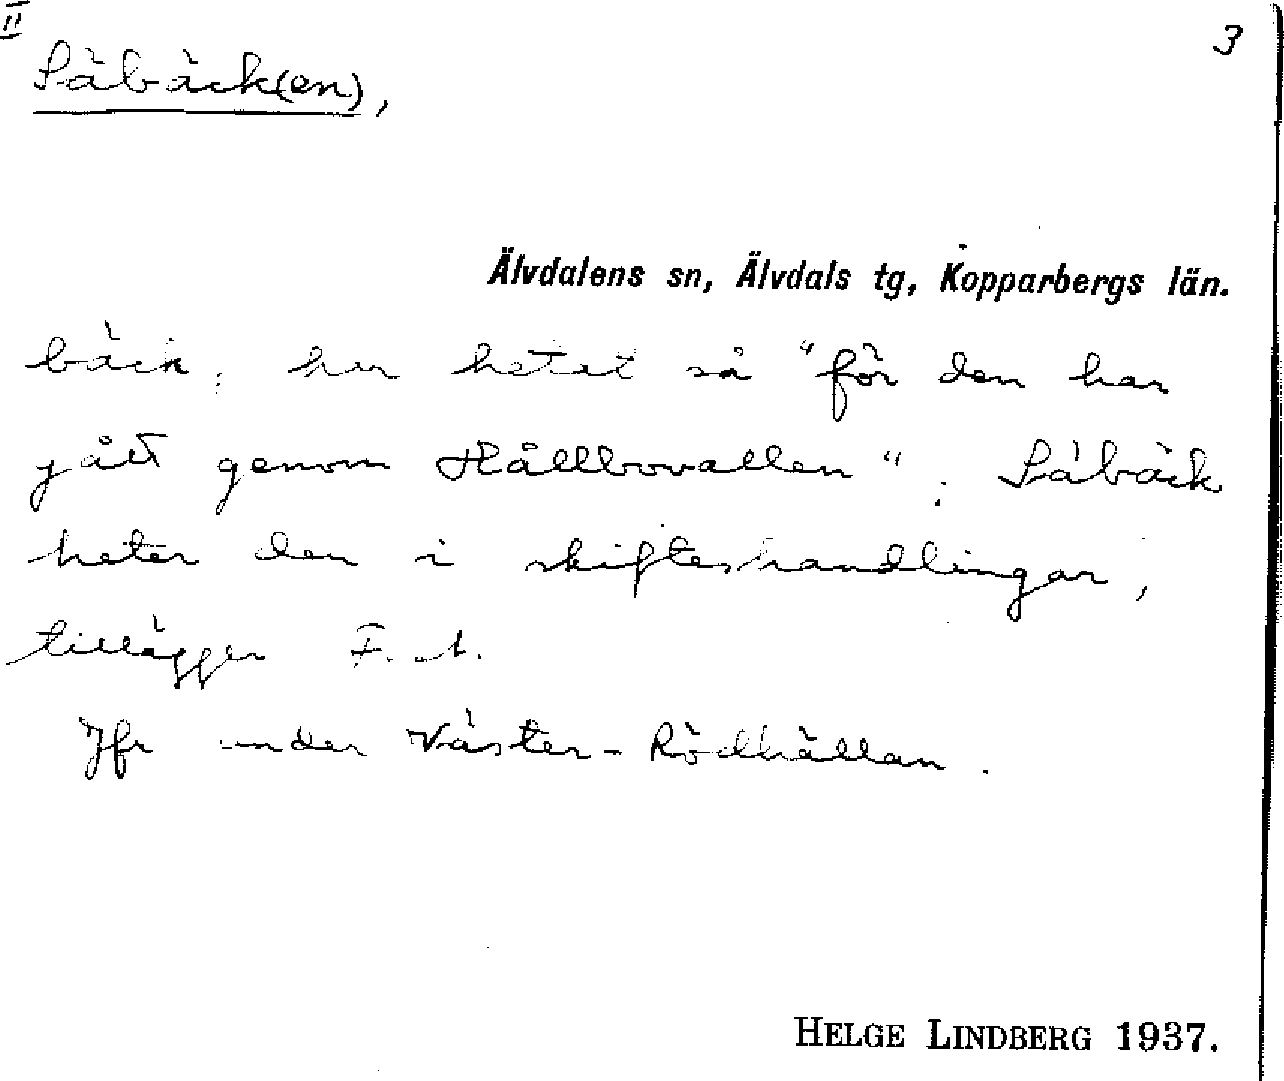 II
3
Såbäck(en),
Älvdalens sn, Älvdals tg, Kopparbergs län.
bäck; har hetat så "för den har
gått genom Hållbovallen"; Såbäck
heter den i skifteshandlingar,
tillägger F. A.
Jfr under Väster-Rödhällan.
HELGE LINDBERG 1937.